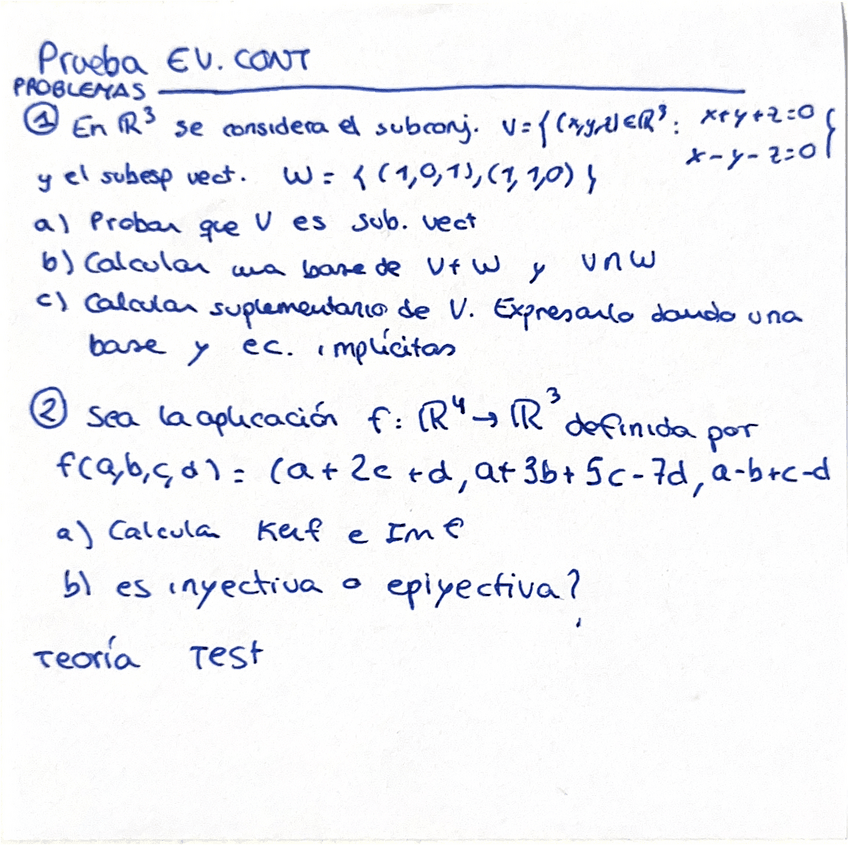 Prueba EV. CONT
PROBLEMAS
① En ℝ³ se considera el subconj. V = { (x,y,z) ∈ ℝ³ : x+y+z=0
x-y-z=0 }
y el subesp vect. W = { (1,0,1), (1,1,0) }
a) Probar que V es sub. vect
b) Calcular una base de V+W y V∩W
c) Calcular suplementario de V. Expresarlo dando una
base y ec. implícitas
② Sea la aplicación f: ℝ⁴ → ℝ³ definida por
f(a,b,c,d) = (a+2c+d, a+3b+5c-7d, a-b+c-d
a) Calcular Kerf e Imf
b) es inyectiva o epiyectiva?
Teoría Test